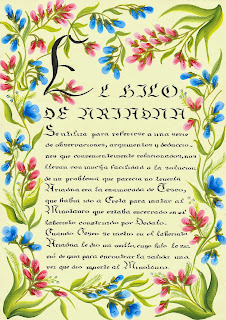 EL HILO
DE ARIADNA
Se utiliza para referirse a una serie
de observaciones, argumentos y deduccio_
nes que convenientemente relacionados, nos
llevan con mucha facilidad a la solución
de un problema que parecía no tenerla.
Ariadna era la enamorada de Teseo,
que había ido a Creta para matar al
Minotauro que estaba encerrado en el
laberinto construido por Dédalo.
Cuando Teseo se metió en el laberinto
Ariadna le dio un ovillo, cuyo hilo le sir_
vió de guía para encontrar la salida una
vez que dio muerte al Minotauro.